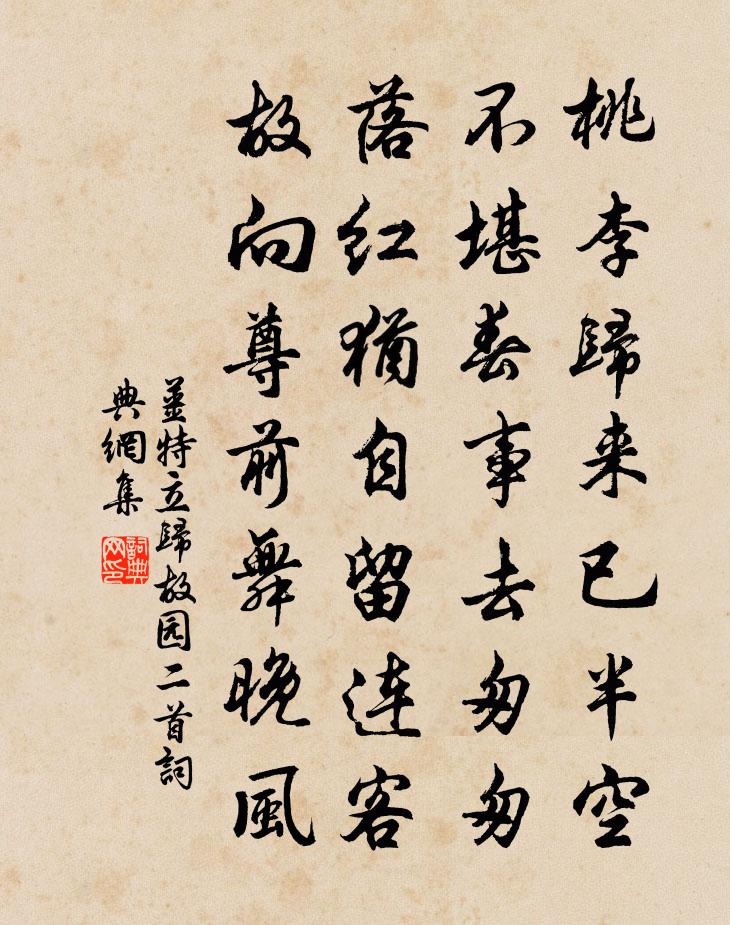 桃李歸来已半空
不堪春事去匆匆
落红猶自留連客
故向尊前舞晚風
姜特立歸故园二首詞
典網集
詞典
网印